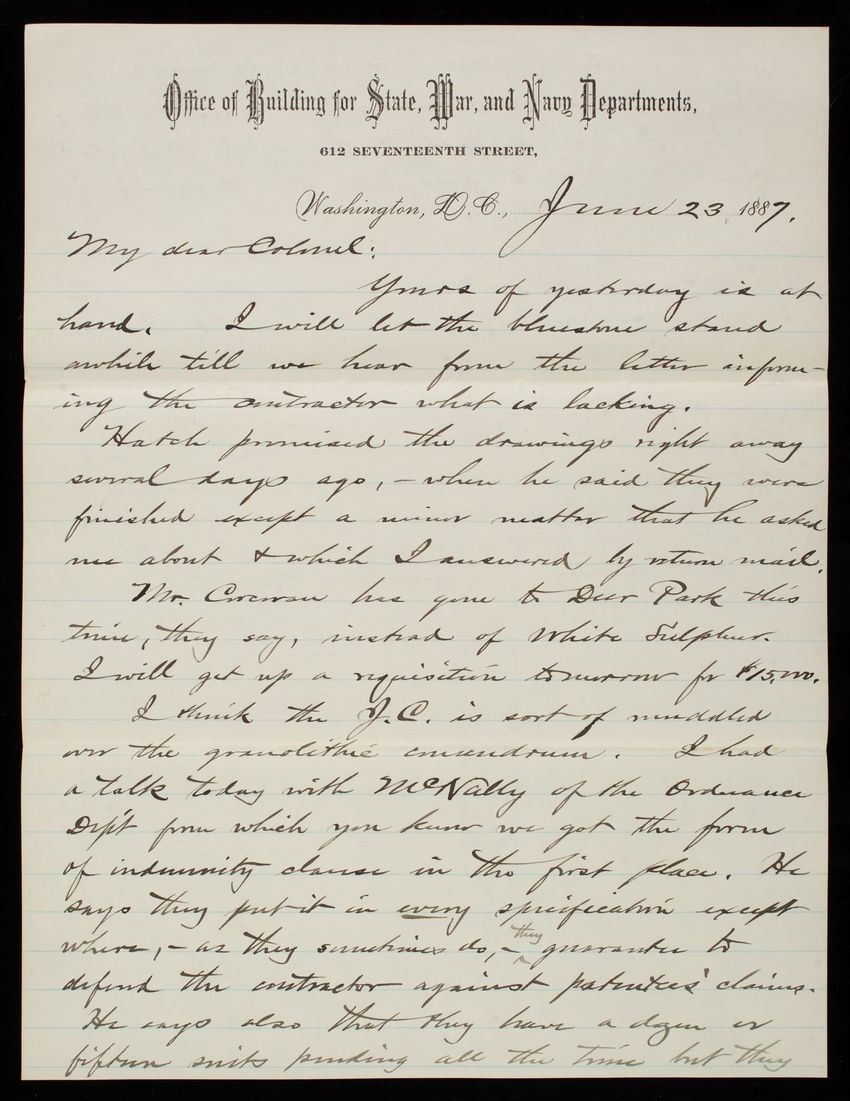 Office of Building for State, War, and Navy Departments,
612 SEVENTEENTH STREET,
Washington, D.C., June 23, 1887.
My dear Colonel:
Yours of yesterday is at
hand. I will let the bluestone stand
awhile till we hear from the letter inform-
ing the contractor what is lacking.
Hatch promised the drawings right away
several days ago, – when he said they were
finished except a minor matter that he asked
me about & which I answered by return mail.
Mr. Corcoran has gone to Deer Park this
time, they say, instead of White Sulphur.
I will get up a requisition tomorrow for $15,000.
I think the J.C. is sort of muddled
over the granolithic conundrum. I had
a talk today with McNally of the Ordnance
Dep't from which you know we got the form
of indemnity clause in the first place. He
says they put it in every specification except
where, – as they sometimes do, – they guarantee to
defend the contractor against patentees' claims.
He says also that they have a dozen or
fifteen suits pending all the time but they